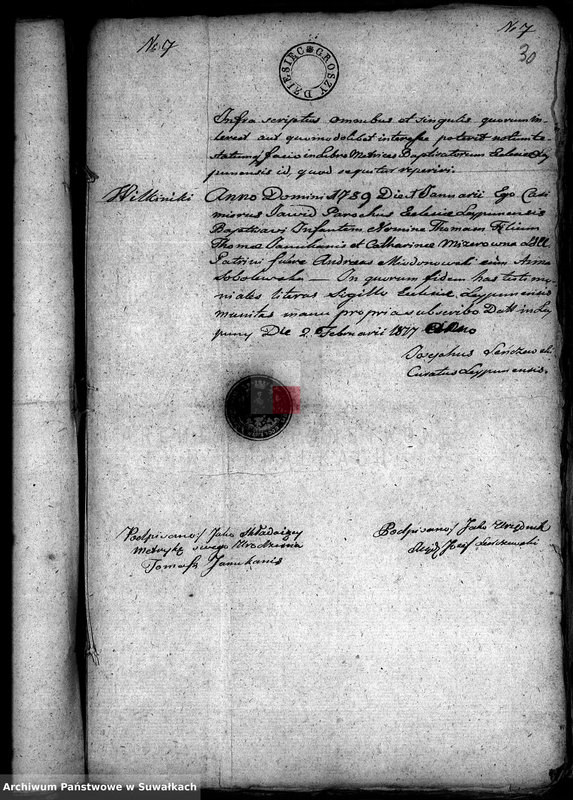 No 7
No 7
30
DZIESIĘC GROSZY
Infra scriptus omnibus et singulis quorum in-
terest aut quomodolibet interesse poterit notum te-
statumq facio in Libro Metrices Baptisatorum Ecclesiae Ley-
punensis id, quod sequitur reperiri.
Wilkiniki Anno Domini 1789 Die 1 Januarii Ego Casi
mirus Parochus Ecclesiae Leypunensis
Baptisavi Infantem Nomine Thomam Filium
Thomae Janukanis et Catharinae Mizerowna LCC
Patrini fuere Andreas cum Anna
Sobolewska — In quorum fidem has testimo
niales literas Sigillo Ecclesiae Leypunensis
munitas manu propria subscribo Datt in Ley
puny Die 2 Februarii 1817 Anno
Josephus
Curatus Leypunensis.
Podpisano Jako Składaiący
Metrykę swego Urodzenia
Tomasz Janukanis
Podpisano Jako Urzędnik
Józef
Archiwum Państwowe w Suwałkach